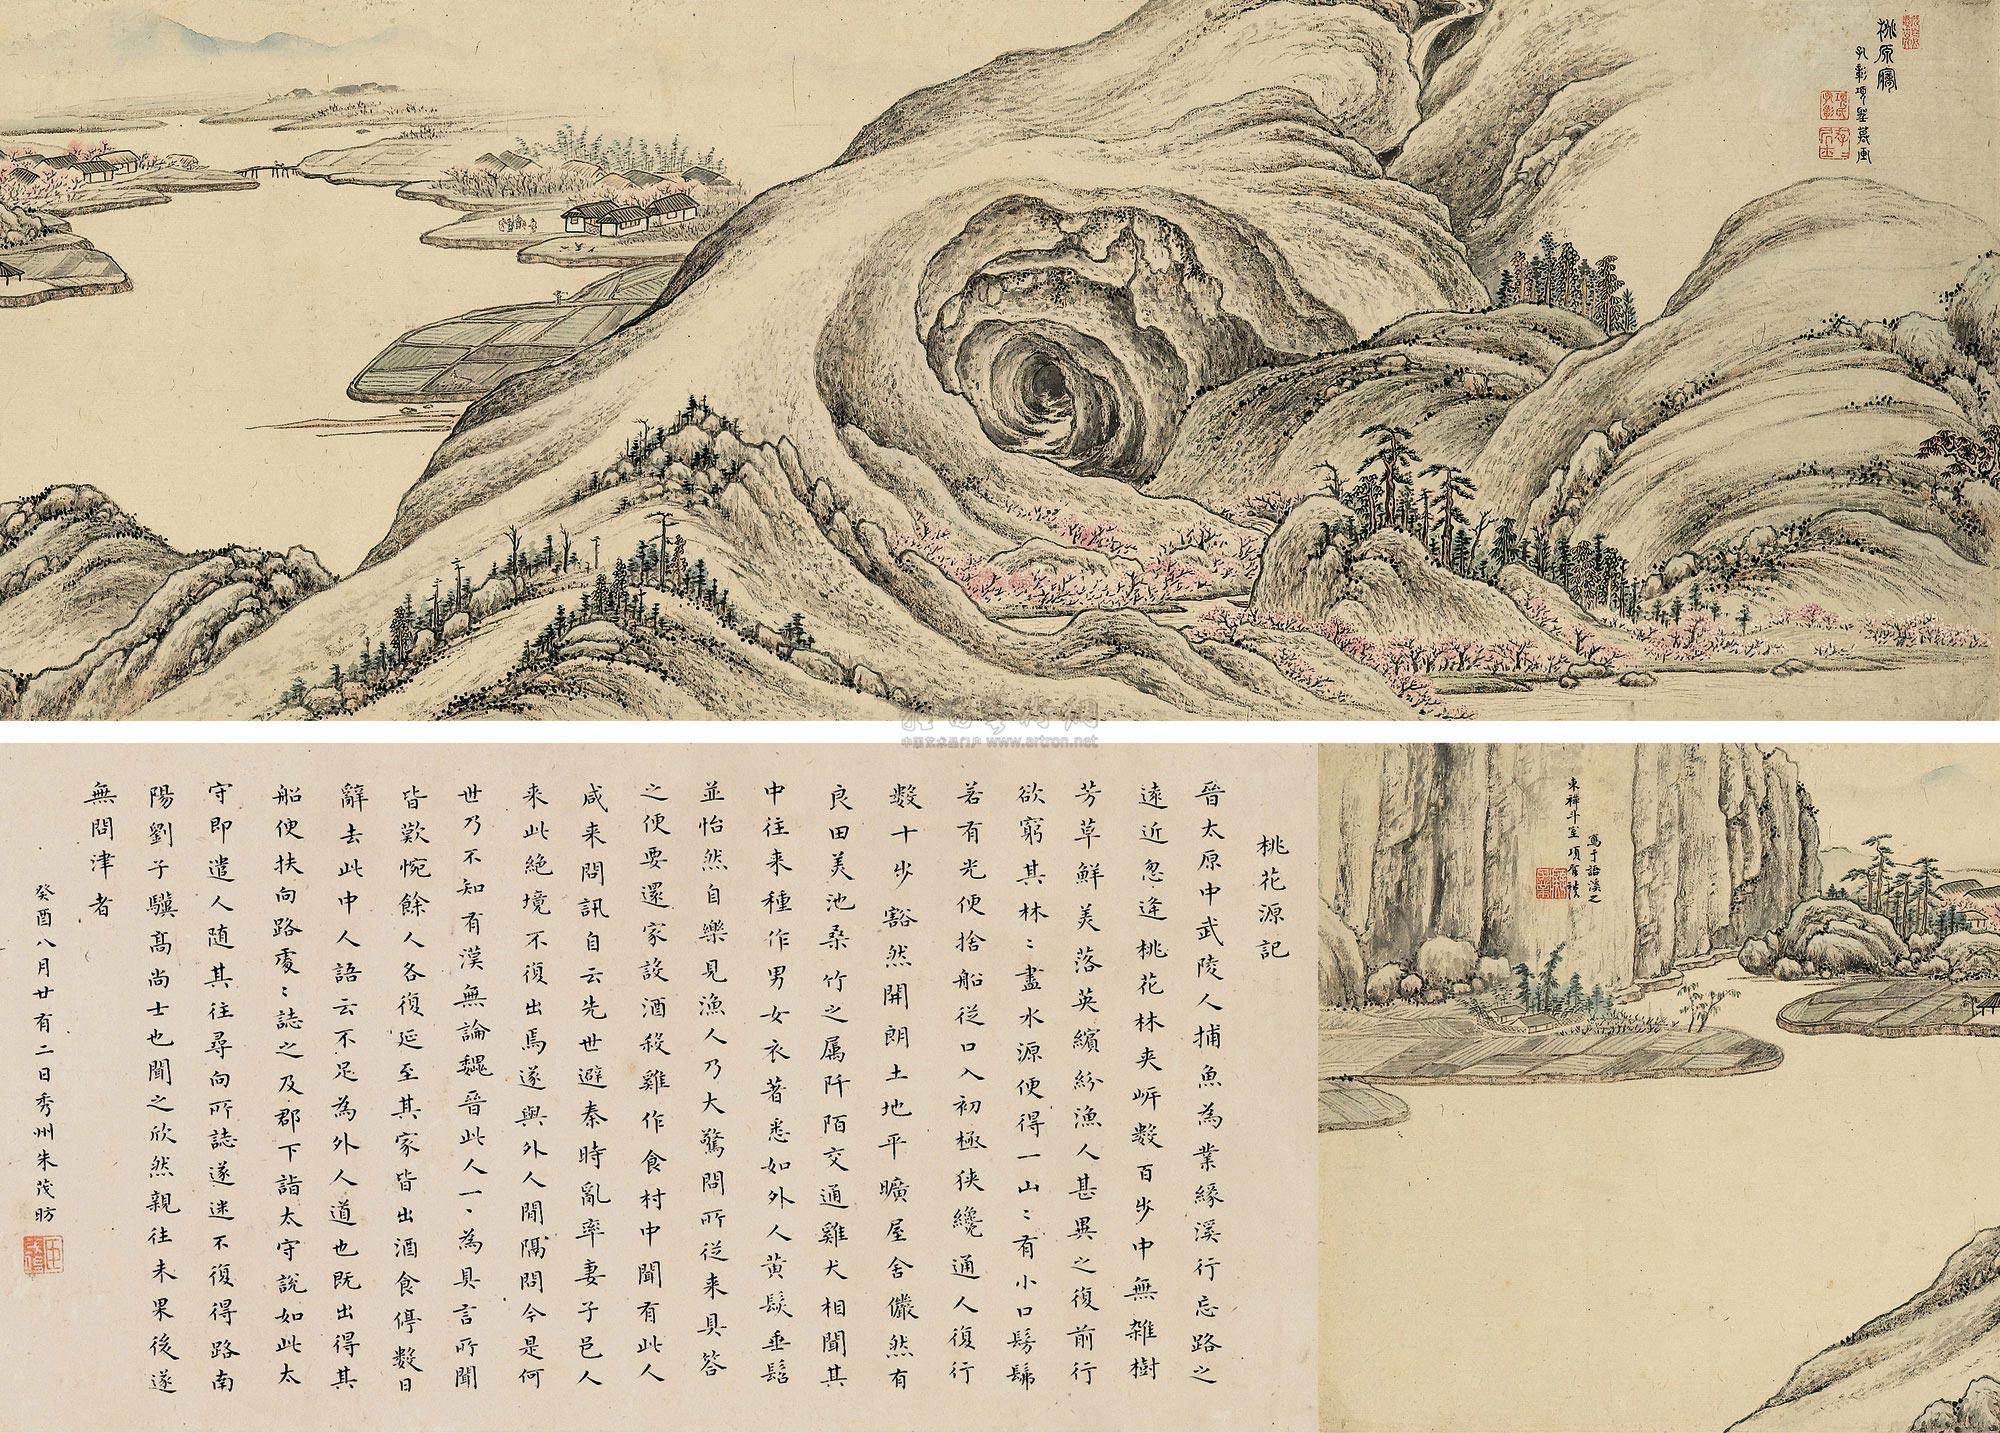 桃源圖
孔彰項聖謨畫
雅昌藝術網
中国艺术品门户 www.artron.net
寫于語溪之
東禪斗室項聖謨
桃花源記
晉太原中武陵人捕魚為業緣溪行忘路之
遠近忽逢桃花林夾岍数百步中無雜樹
芳草鮮美落英繽紛漁人甚異之復前行
欲窮其林〻盡水源便得一山〻有小口髣髴
若有光便捨船從口入初極狭纔通人復行
数十步豁然開朗土地平曠屋舍儼然有
良田美池桑竹之属阡陌交通雞犬相聞其
中往来種作男女衣著悉如外人黄髮垂髫
並怡然自樂見漁人乃大驚問所從来具答
之便要還家設酒殺雞作食村中聞有此人
咸来問訊自云先世避秦時亂率妻子邑人
来此絶境不復出焉遂與外人間隔問今是何
世乃不知有漢無論魏晉此人一〻為具言所聞
皆歎惋餘人各復延至其家皆出酒食停数日
辭去此中人語云不足為外人道也既出得其
船便扶向路處〻誌之及郡下詣太守說如此太
守即遣人随其往尋向所誌遂迷不復得路南
陽劉子驥高尚士也聞之欣然親往未果後遂
無問津者
癸酉八月廿有二日秀州朱茂昉